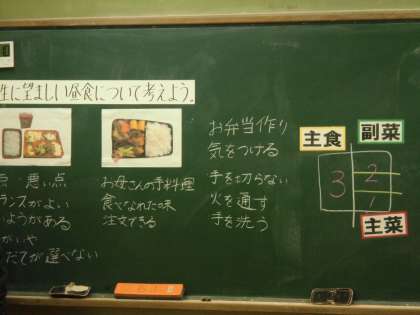 性に望ましい昼食について考えよう。
点・悪い点
ランスがよい
いようがある
かいや
だてが選べない
お母さんの手料理
食べなれた味
注文できる
お弁当作り
気をつける
手を切らない
火を通す
手を洗う
主食
副菜
3
2
1
主菜